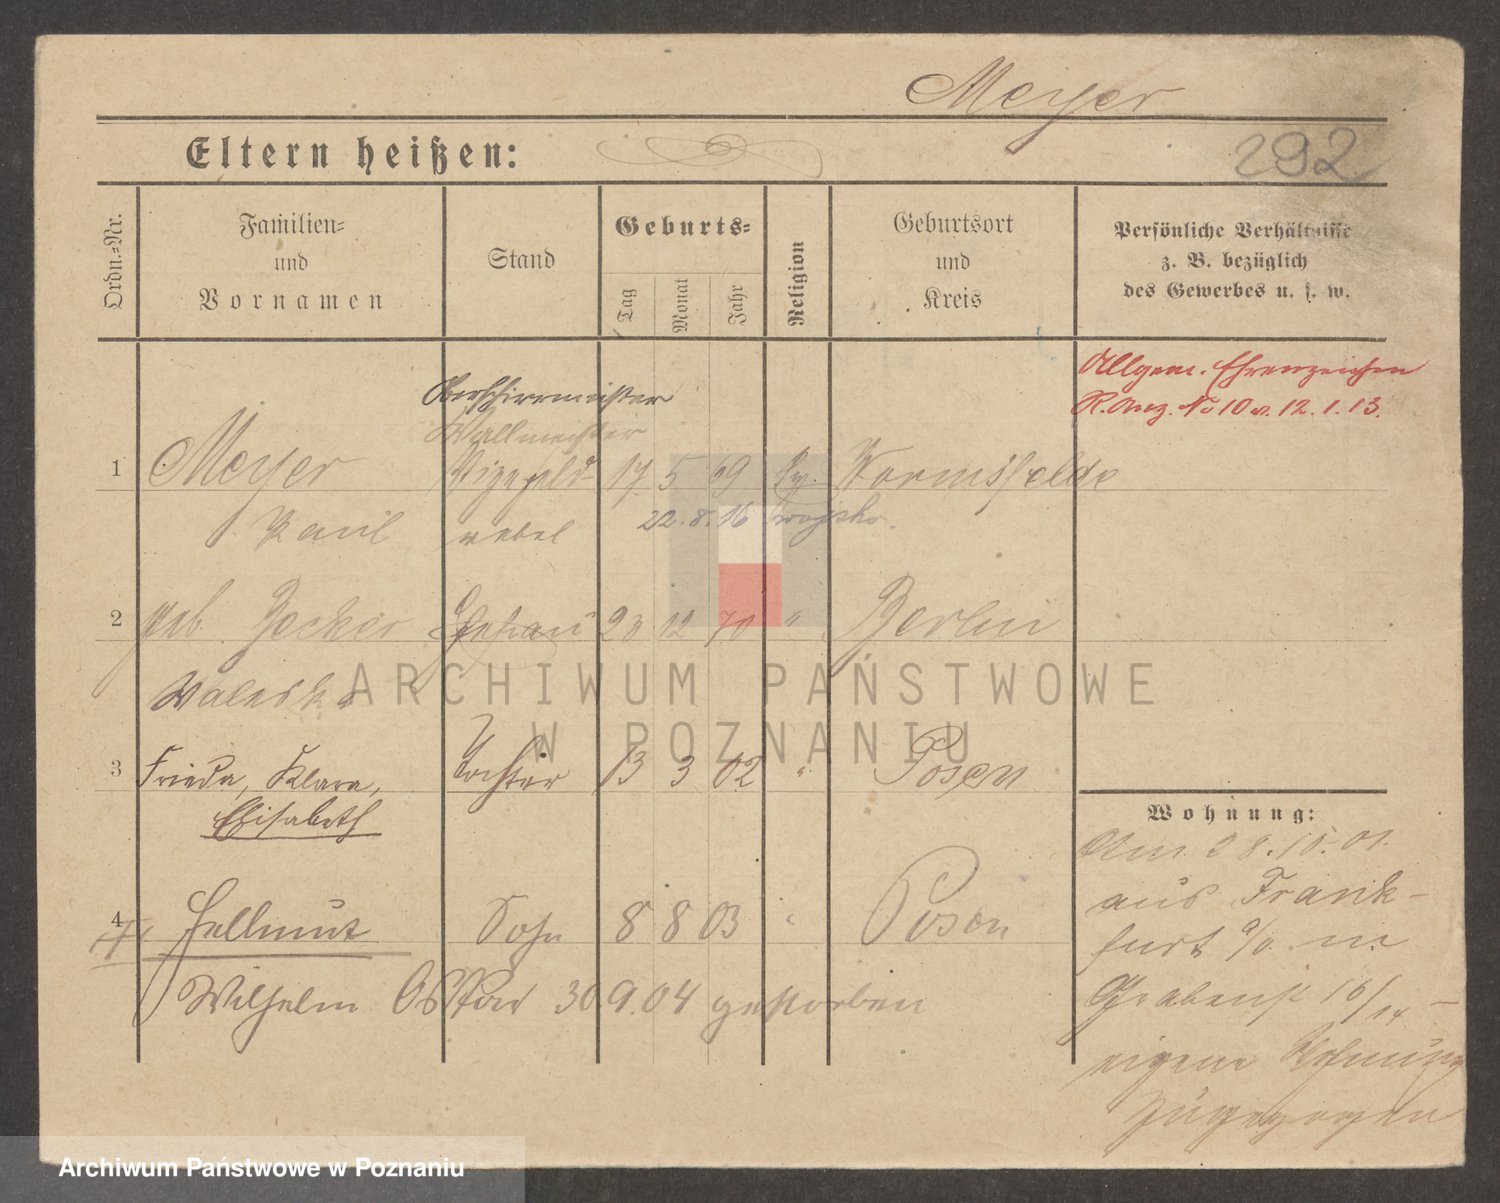 Meyer
292
Eltern heißen:
Ordn.-Nr.
Familien-
und
Vornamen
Stand
Geburts-
Tag
Monat
Jahr
Religion
Geburtsort
und
Kreis
Persönliche Verhältnisse
z. B. bezüglich
des Gewerbes u. s. w.
Allgem. Ehrenzeichen
R. Anz. No 10 v. 12. 1. 13.
Oberschirrmeister
Wallmeister
1 Meyer Vizefeld- 17 5 69 Ev. Wormsfelde
Paul webel 22.8.16 wojsko.
2 geb. Becker Ehefrau 23 12 70 " Berlin
Waleska
3 Frieda, Klara, Tochter 13 3 02 " Posen
Elisabeth
Wohnung:
Am 28.10.01.
aus Frank-
furt a/O. in
Grabenst 16/14 -
eigene Wohnung
zugezogen
4 Hellmut Sohn 8 8 03 " Posen
Wilhelm Oskar 30 9.04 gestorben
ARCHIWUM PAŃSTWOWE
W POZNANIU
Archiwum Państwowe w Poznaniu